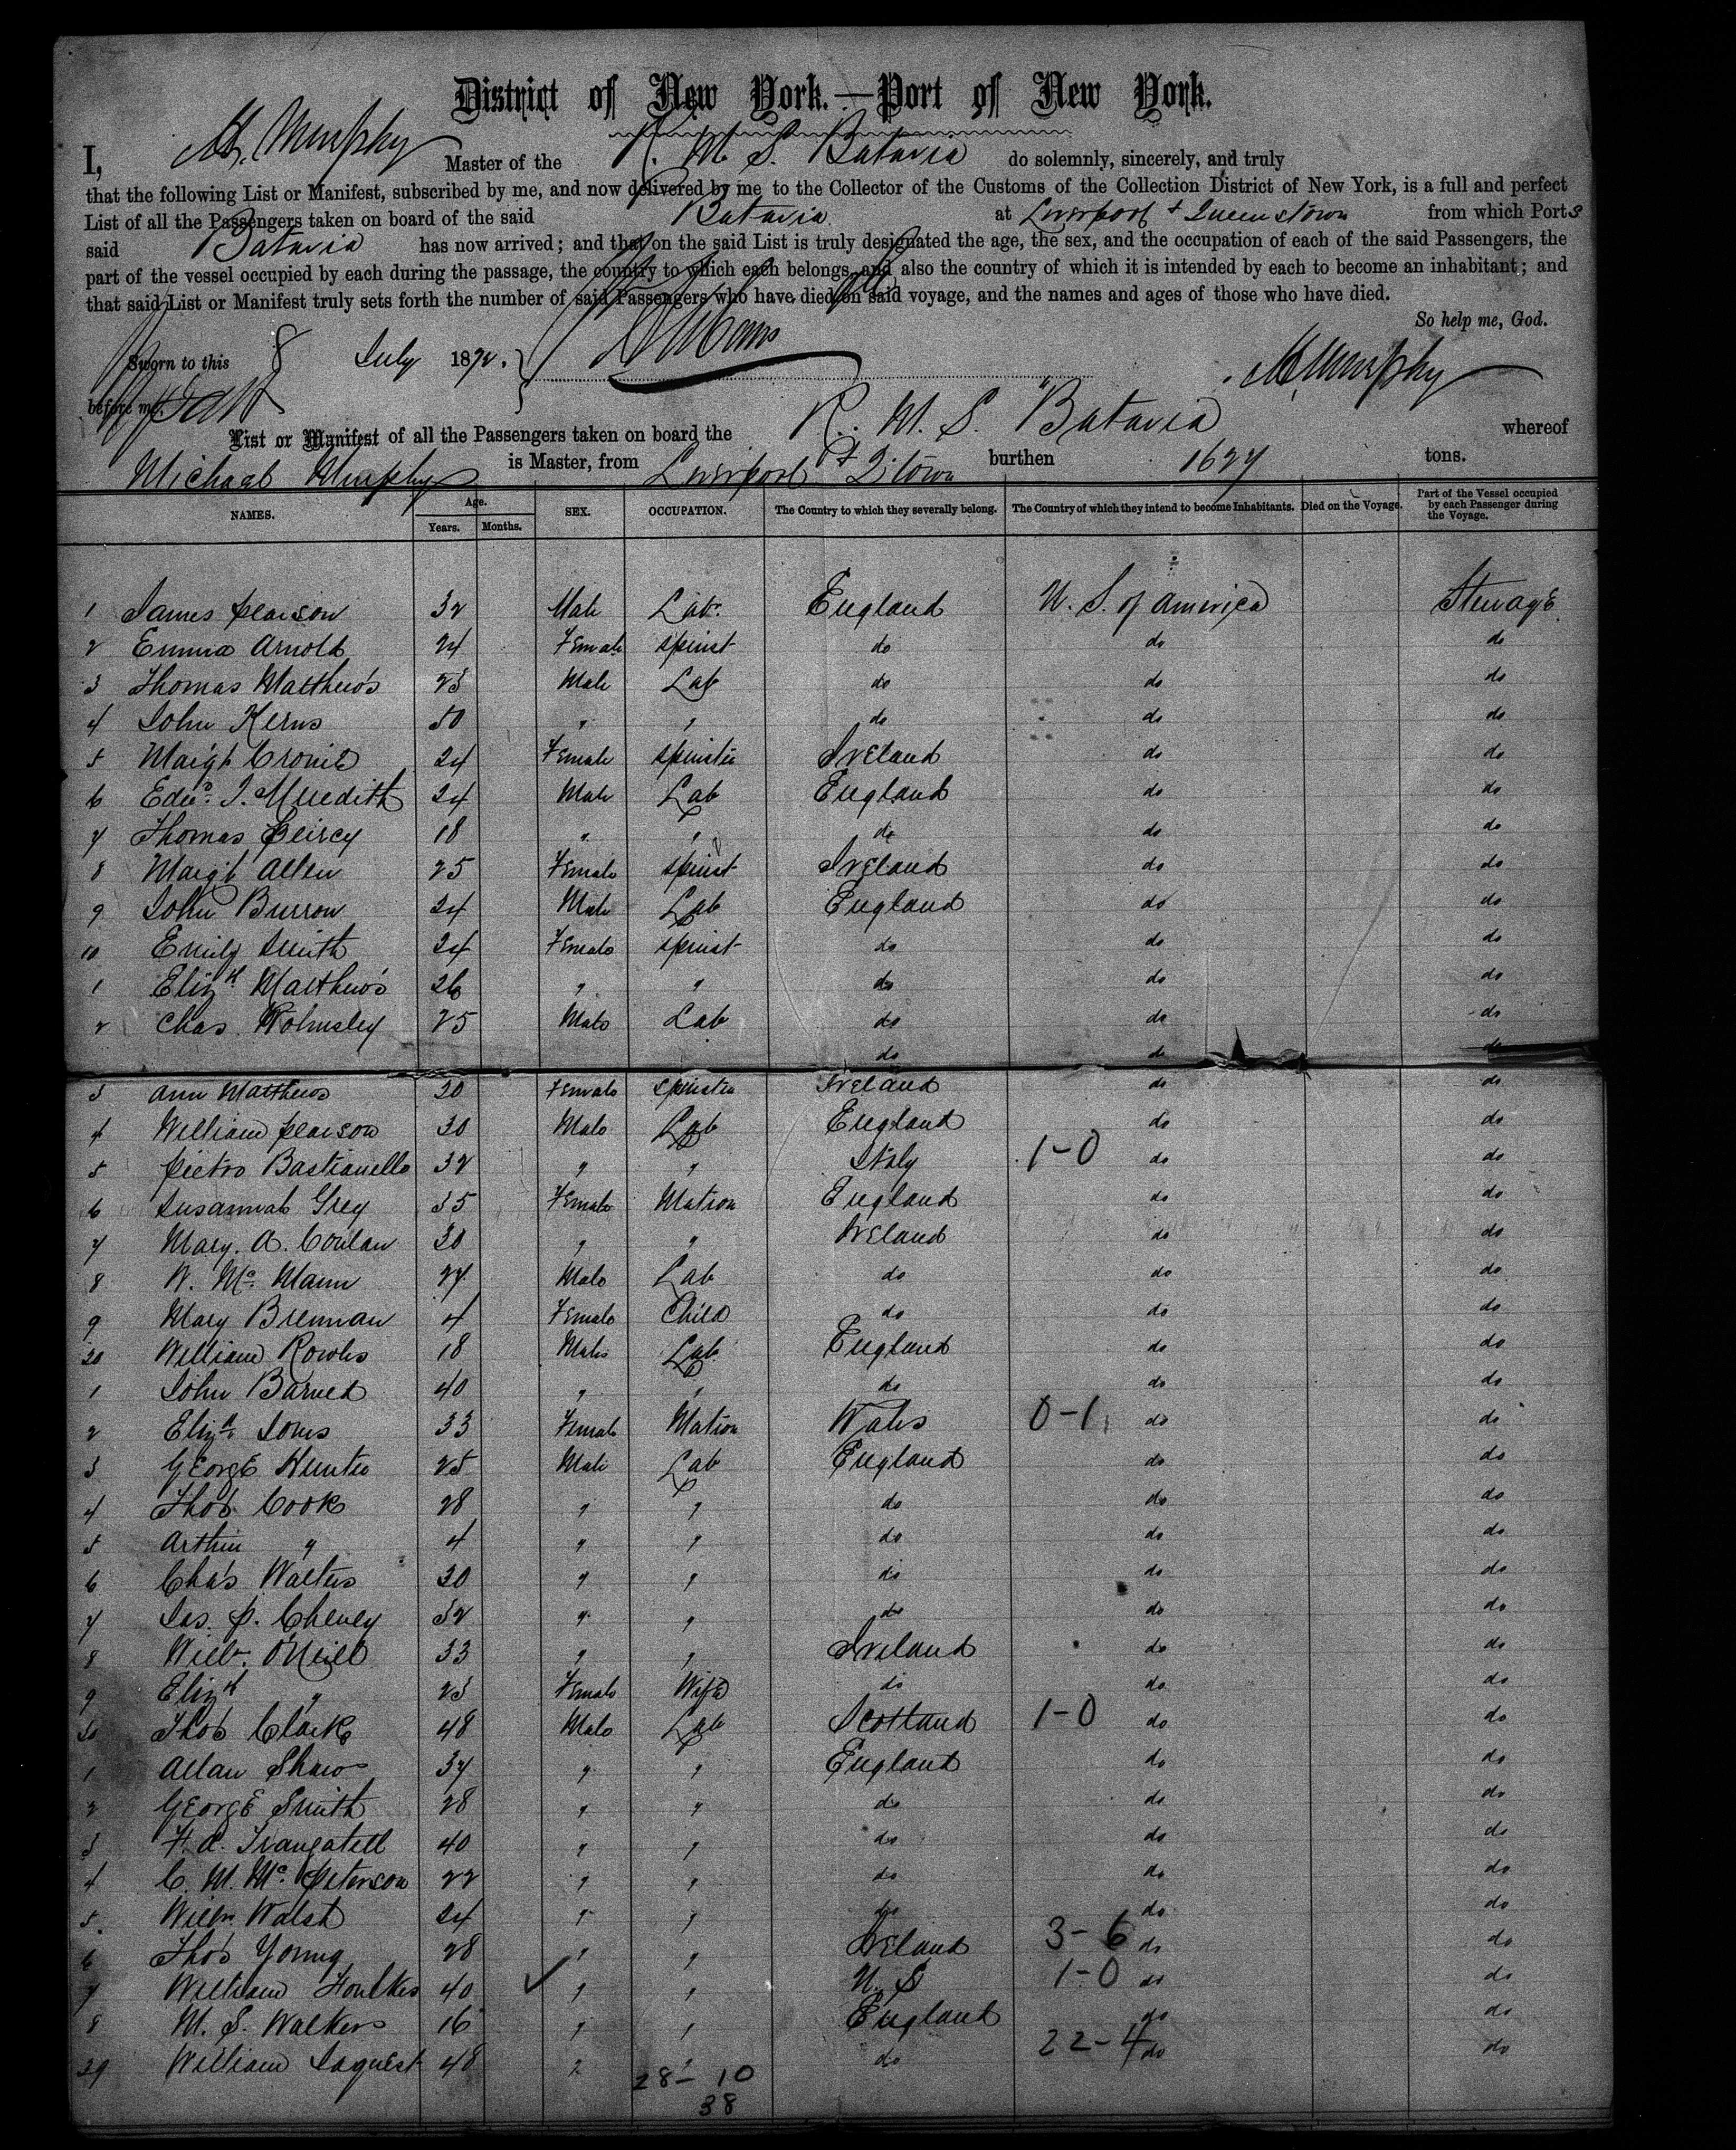 District of New York.—Port of New York.
I, M. Murphy Master of the R. M. S. Batavia do solemnly, sincerely, and truly
that the following List or Manifest, subscribed by me, and now delivered by me to the Collector of the Customs of the Collection District of New York, is a full and perfect
List of all the Passengers taken on board of the said Batavia at Liverpool + Queenstown from which Ports
said Batavia has now arrived; and that on the said List is truly designated the age, the sex, and the occupation of each of the said Passengers, the
part of the vessel occupied by each during the passage, the country to which each belongs, and also the country of which it is intended by each to become an inhabitant; and
that said List or Manifest truly sets forth the number of said Passengers who have died on said voyage, and the names and ages of those who have died.
So help me, God.
Sworn to this 8 July 1872. M Murphy
before me.
List or Manifest of all the Passengers taken on board the R. M. S. "Batavia whereof
Michael Murphy is Master, from Liverpool + Qtown burthen 1627 tons.
NAMES. Age. Years. Months. SEX. OCCUPATION. The Country to which they severally belong. The Country of which they intend to become Inhabitants. Died on the Voyage. Part of the Vessel occupied by each Passenger during the Voyage.
1 James Pearson 32 Male Labr. England U. S. of America Steerage
2 Emma Arnold 24 Female Spinst do do do
3 Thomas Matthews 23 Male Lab do do do
4 John Kerns 50 " " do do do
5 Margt Cronie 24 Female Spinster Ireland do do
6 Edwd. J. Meredith 24 Male Lab England do do
7 Thomas Peircy 18 " " do do do
8 Margt Allen 25 Female Spinst Ireland do do
9 John Burrow 24 Male Lab England do do
10 Emily Smith 24 Female Spinst do do do
1 Elizth Matthews 26 " " do do do
2 Chas. Wolmsley 25 Male Lab do do do
do do do
3 Ann Matthews 20 Female Spinster Ireland do do
4 William Pearson 30 Male Lab England do do
5 Pietro Bastianello 32 " " Italy 1-0 do do
6 Susannah Grey 35 Female Matron England do do
7 Mary. A. Conlan 30 " " Ireland do do
8 W. Mc. Mann 27 Male Lab do do do
9 Mary Brennan 4 Female Child do do do
20 William Rowles 18 Male Lab England do do
1 John Barned 40 " " do do do
2 Eliza. Jones 33 Female Matron Wales 0-1 do do
3 George Hunter 25 Male Lab England do do
4 Thos. Cook 28 " " do do do
5 Arthur " 4 " " do do do
6 Chas Walters 30 " " do do do
7 Jas. P. Cheney 32 " " do do do
8 Willm. O'Neill 33 " " Ireland do do
9 Elizth " 23 Female Wife do do do
30 Thos Clark 48 Male Lab Scotland 1-0 do do
1 Allan Shaw 37 " " England do do
2 George Smith 28 " " do do do
3 40 " " do do do
4 C. M. Mc. Peterson 22 " " do do do
5 Willm. Walsh 24 " " do do do
6 Thos Young 28 " " Ireland 3-6 do do
7 William Foulkes 40 " " U. S 1-0 do do
8 M. S. Walker 16 " " England do do
39 William Jaquest 48 " " do 22-4 do do
28-10
38